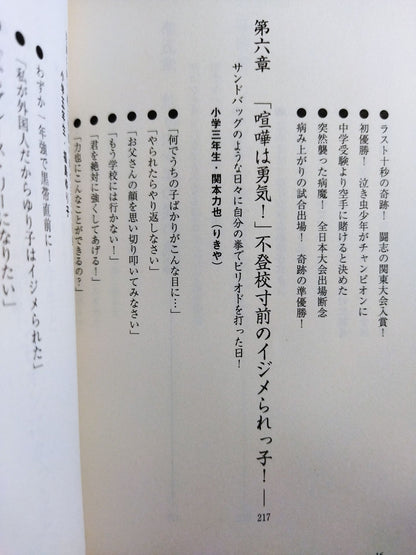 ●ラスト十秒の奇跡！ 闘志の関東大会入賞！
●初優勝！ 泣き虫少年がチャンピオンに
●中学受験より空手に賭けると決めた
●突然襲った病魔！ 全日本大会出場断念
●病み上がりの試合出場！ 奇跡の準優勝！
第六章 「喧嘩は勇気！」不登校寸前のイジメられっ子！―217
サンドバッグのような日々に自分の拳でピリオドを打った日！
小学三年生・関本力也（りきや）
●「何でうちの子ばかりがこんな目に…」
●「やられたらやり返しなさい」
●「お父さんの顔を思い切り叩いてみなさい」
●「もう学校には行かない！」
●「君を絶対に強くしてあげる！」
●「力也にこんなことができるの？」
小学五年生
●わずか一年強で黒帯直前に！
●「私が外国人だからゆり子はイジメられた」
になりたい」